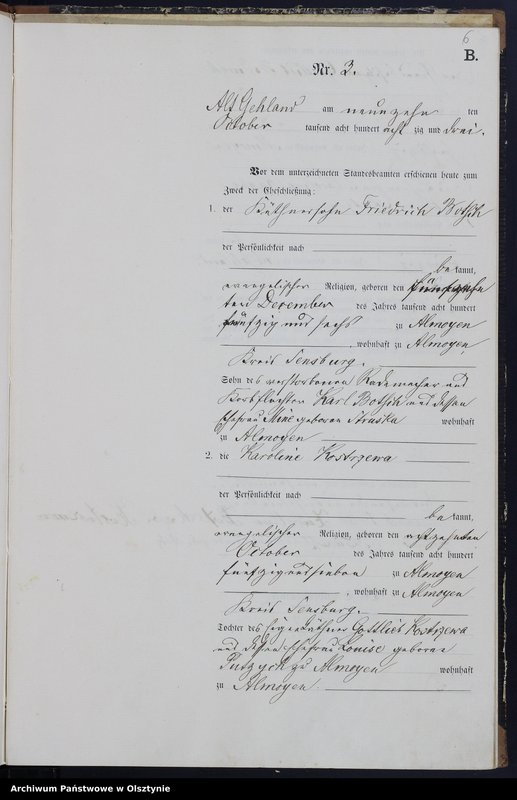 6
B.
Nr. 3.
Alt Gehland am neunzehn ten
October tausend acht hundert acht zig und drei.
Vor dem unterzeichneten Standesbeamten erschienen heute zum
Zweck der Eheschließung:
1. der Käthnersohn Friedrich Botsch
der Persönlichkeit nach
be kannt,
evangelischer Religion, geboren den fünfzehn
ten Dezember des Jahres tausend acht hundert
fünfzig und sechs zu Almoyen
, wohnhaft zu Almoyen,
Kreis Sensburg.
Sohn des verstorbenen Rademacher und
Korbflechter Karl Botsch und dessen
Ehefrau Mine geboren Struska wohnhaft
zu Almoyen
2. die Karoline Kostrzewa
der Persönlichkeit nach
be kannt,
evangelischer Religion, geboren den achtzehnten
October des Jahres tausend acht hundert
fünfzig und sieben zu Almoyen
, wohnhaft zu Almoyen
Kreis Sensburg.
Tochter des Eigenkäthner Gottlieb Kostrzewa
und dessen Ehefrau Louise geborene
Putzych zu Almoyen wohnhaft
zu Almoyen
Archiwum Państwowe w Olsztynie